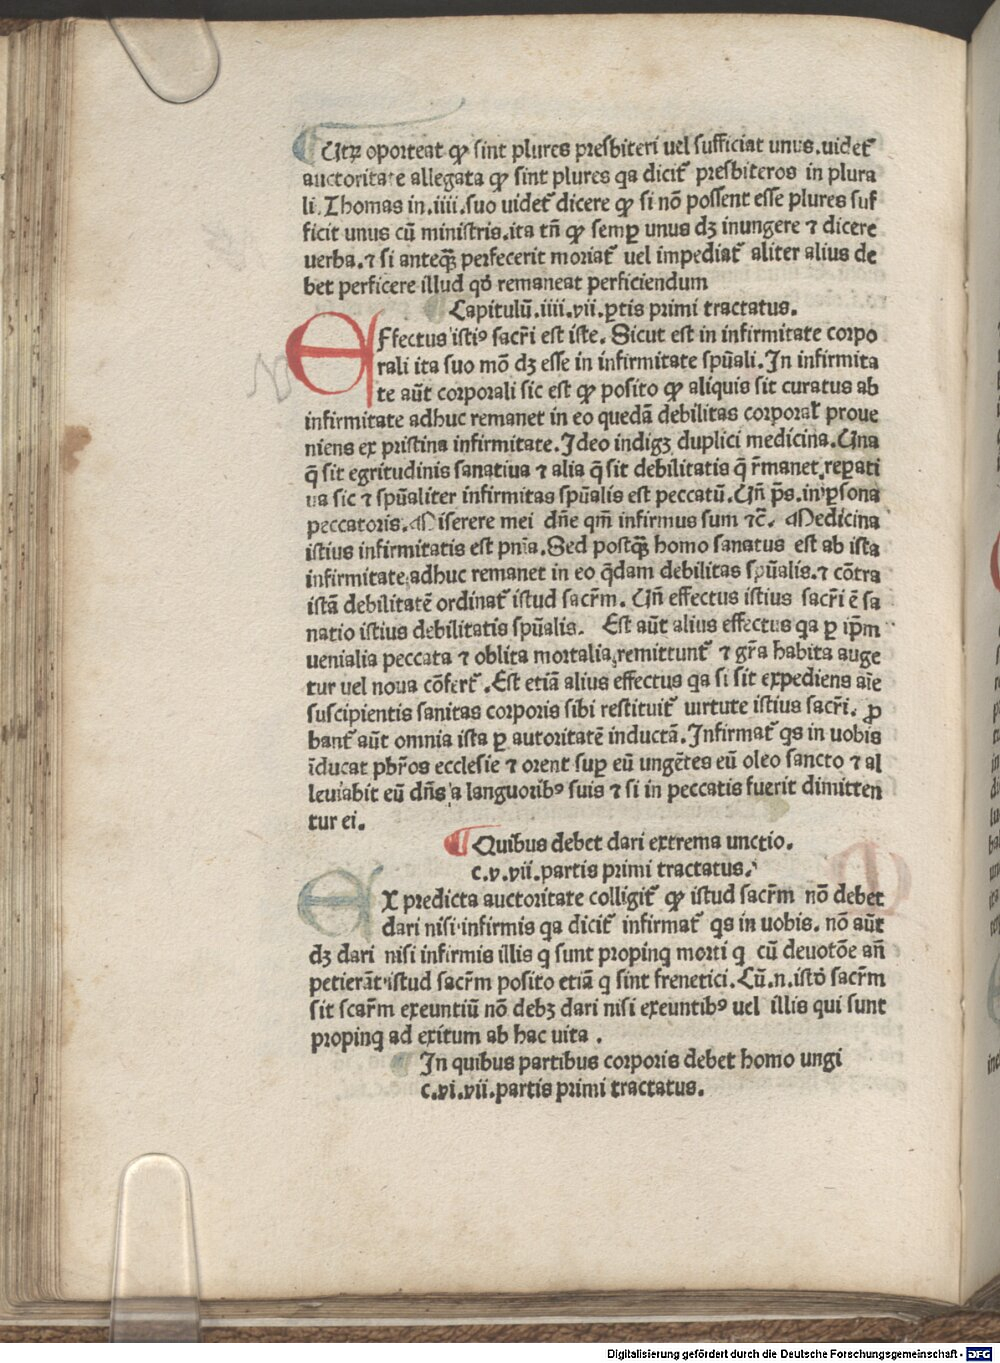 ¶ Utꝝ oporteat ꝙ sint plures presbiteri uel sufficiat unus.uidet᷑
auctoritate allegata ꝙ sint plures qa dicit᷑ presbiteros in plura
li.Thomas in.iiii.suo uidet᷑ dicere ꝙ si nō possent esse plures suf
ficit unus cū ministris.ita tn̄ ꝙ semꝑ unus dꝫ inungere ⁊ dicere
uerba.⁊ si anteq̄ꝫ perfecerit moriat᷑ uel impediat᷑ aliter alius de
bet perficere illud qđ remaneat perficiendum
Capitulū.iiii.vii.ꝑtis primi tractatus.
EFfectus istiꝰ sacr̄i est iste. Sicut est in infirmitate corpo
rali ita suo mō dꝫ esse in infirmitate spūali.In infirmita
te aūt corporali sic est ꝙ posito ꝙ aliquis sit curatus ab
infirmitate adhuc remanet in eo quedā debilitas corporał proue
niens ex pristina infirmitate.Ideo indigꝫ duplici medicina.Una
q̄ sit egritudinis sanatiua ⁊ alia q̄ sit debilitatis q̄ r̄manet reꝑati
ua sic ⁊ spūaliter infirmitas spūalis est peccatū.Un̄ p̄s.in ꝑsona
peccatoris.Miserere mei dn̄e qm̄ infirmus sum ⁊c̄. Medicina
istius infirmitatis est pnīa.Sed postq̄ꝫ homo sanatus est ab ista
infirmitate adhuc remanet in eo q̄dam debilitas spūalis.⁊ cōtra
istā debilitatē ordinat᷑ istud sacr̄m. Un̄ effectus istius sacr̄i ē sa
natio istius debilitatis spūalis. Est aūt alius effectus qa ꝑ ip̄m
uenialia peccata ⁊ oblita mortalia remittunt᷑ ⁊ gr̄a habita auge
tur uel noua cōfert᷑.Est etiā alius effectus qa si sit expediens aīe
suscipientis sanitas corporis sibi restituit᷑ uirtute istius sacr̄i. ꝓ
bant᷑ aūt omnia ista ꝑ autoritatē inductā.Infirmat᷑ qs in uobis
īducat pbr̄os ecclesie ⁊ orent suꝑ eū ungētes eū oleo sancto ⁊ al
leuiabit eū dn̄s a languoribꝰ suis ⁊ si in peccatis fuerit dimitten
tur ei.
¶ Quibus debet dari extrema unctio.
c.v.vii.partis primi tractatus.
EX predicta auctoritate colligit᷑ ꝙ istud sacr̄m nō debet
dari nisi infirmis qa dicit᷑ infirmat᷑ qs in uobis. nō aūt
dꝫ dari nisi infirmis illis q sunt propinq morti q cū deuotōe an̄
petierāt istud sacr̄m posito etiā q sint frenetici.Cū.n.istđ sacr̄m
sit scar̄m exeuntiū nō debꝫ dari nisi exeuntibꝰ uel illis qui sunt
propinq ad exitum ab hac uita .
In quibus partibus corporis debet homo ungi
c.vi.vii.partis primi tractatus.
Digitalisierung gefördert durch die Deutsche Forschungsgemeinschaft - DFG